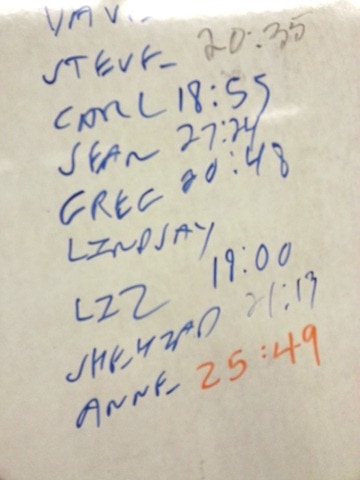 STEVE 20:35
CARL 18:55
SEAN 27:24
GREG 20:48
LINDSAY
LIZ 19:00
SHEHZAD
ANNE 25:49